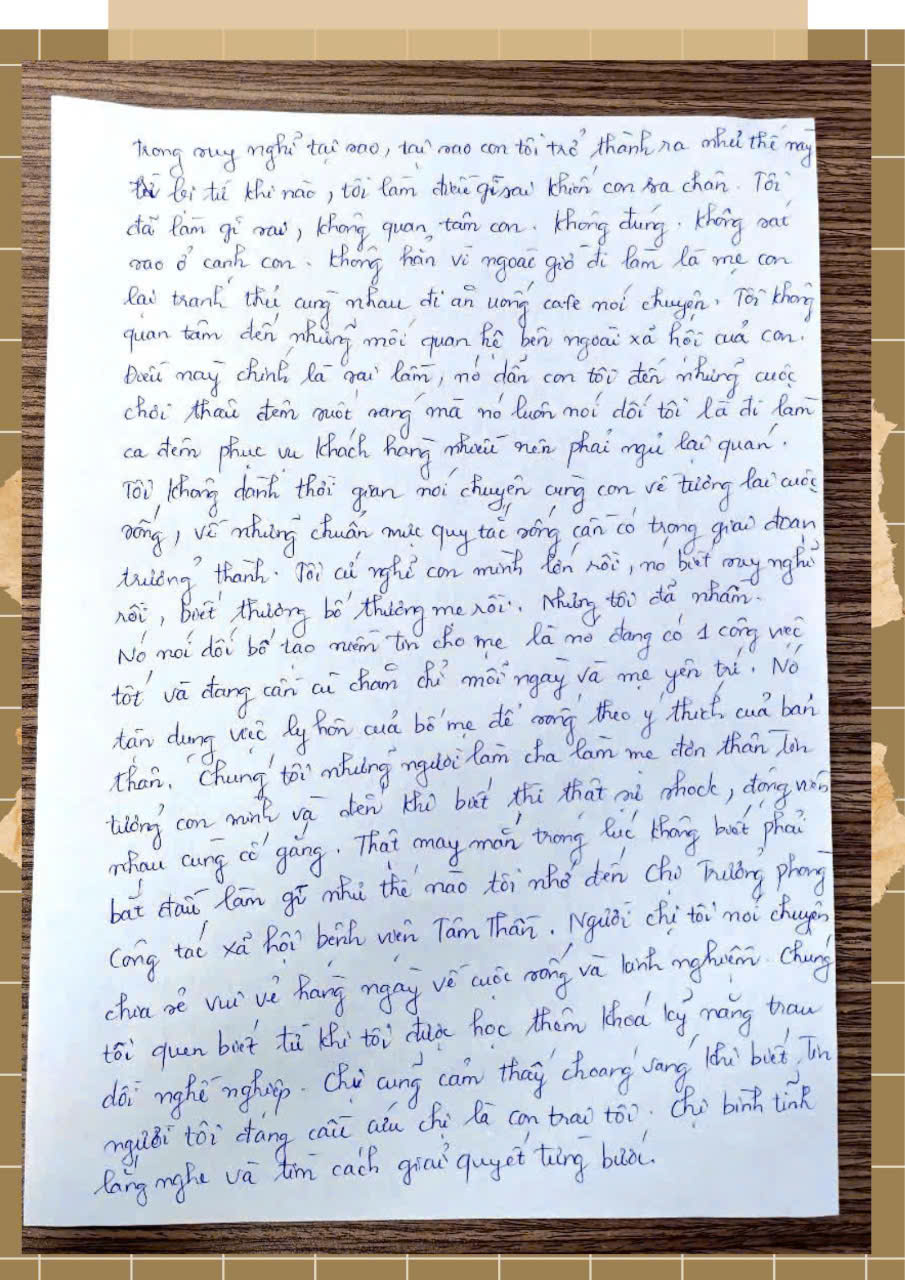 trong suy nghĩ tại sao, tại sao con tôi trở thành ra như thế này
bị từ khi nào, tôi làm điều gì sai khiến con sa chân. Tôi
đã làm gì sai, không quan tâm con. Không đúng. Không sát
sao ở cạnh con. Không hẳn vì ngoài giờ đi làm là mẹ con
lại tranh thủ cùng nhau đi ăn uống cafe nói chuyện. Tôi không
quan tâm đến những mối quan hệ bên ngoài xã hội của con.
Điều này chính là sai lầm, nó dẫn con tôi đến những cuộc
chơi thâu đêm suốt sáng mà nó luôn nói dối tôi là đi làm
ca đêm phục vụ khách hàng nhiều nên phải ngủ lại quán.
Tôi không dành thời gian nói chuyện cùng con về tương lai cuộc
sống, về những chuẩn mực quy tắc sống cần có trong giai đoạn
trưởng thành. Tôi cứ nghĩ con mình lớn rồi, nó biết suy nghĩ
rồi, biết thương bố thương mẹ rồi. Nhưng tôi đã nhầm.
Nó nói dối bố tạo niềm tin cho mẹ là nó đang có 1 công việc
tốt và đang cần cù chăm chỉ mỗi ngày và mẹ yên trí. Nó
tận dụng việc ly hôn của bố mẹ để sống theo ý thích của bản
thân. Chúng tôi những người làm cha làm mẹ đơn thân tin
tưởng con mình và đến khi biết thì thật sự shock, động viên
nhau cùng cố gắng. Thật may mắn trong lúc không biết phải
bắt đầu làm gì như thế nào tôi nhớ đến chị Trưởng phòng
Công tác xã hội bệnh viện Tâm Thần. Người chị tôi nói chuyện
chia sẻ vui vẻ hàng ngày về cuộc sống và kinh nghiệm. Chúng
tôi quen biết từ khi tôi được học thêm khoá kỹ năng trau
dồi nghề nghiệp. Chị cũng cảm thấy choáng váng khi biết tin
người tôi đang cầu cứu chị là con trai tôi. Chị bình tĩnh
lắng nghe và tìm cách giải quyết từng bước.